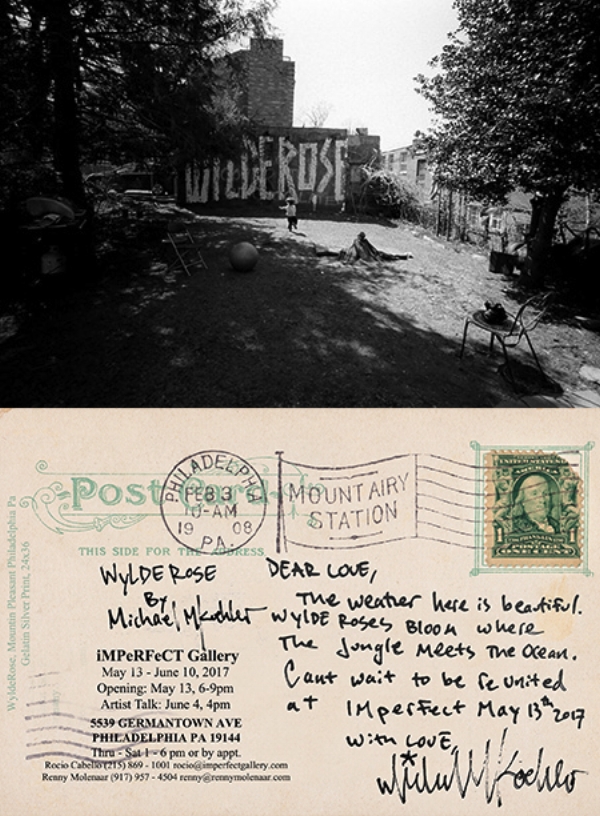 WILDEROSE
Post Card
THIS SIDE FOR THE ADDRESS
PHILADELPHIA
FEB 13
10-AM
19 08
PA.
MOUNT AIRY
STATION
UNITED STATES OF AMERICA
1 1
ONE CENT
WYLDE ROSE
By
Michael M Koehler
iMPeRFeCT Gallery
May 13 - June 10, 2017
Opening: May 13, 6-9pm
Artist Talk: June 4, 4pm
5539 GERMANTOWN AVE
PHILADELPHIA PA 19144
Thru - Sat 1 - 6 pm or by appt.
Rocio Cabello (215) 869 - 1001 rocio@imperfectgallery.com
Renny Molenaar (917) 957 - 4504 renny@rennymolenaar.com
DEAR LOVE,
The weather here is beautiful.
WYLDE Roses Bloom where
The Jungle Meets The Ocean.
Cant wait to be reunited
at IMperfect May 13th 2017
with LOVE,
Michael M Koehler
WyldeRose, Mountin Pleasant Philadelphia Pa
Gelatin Silver Print, 24x36